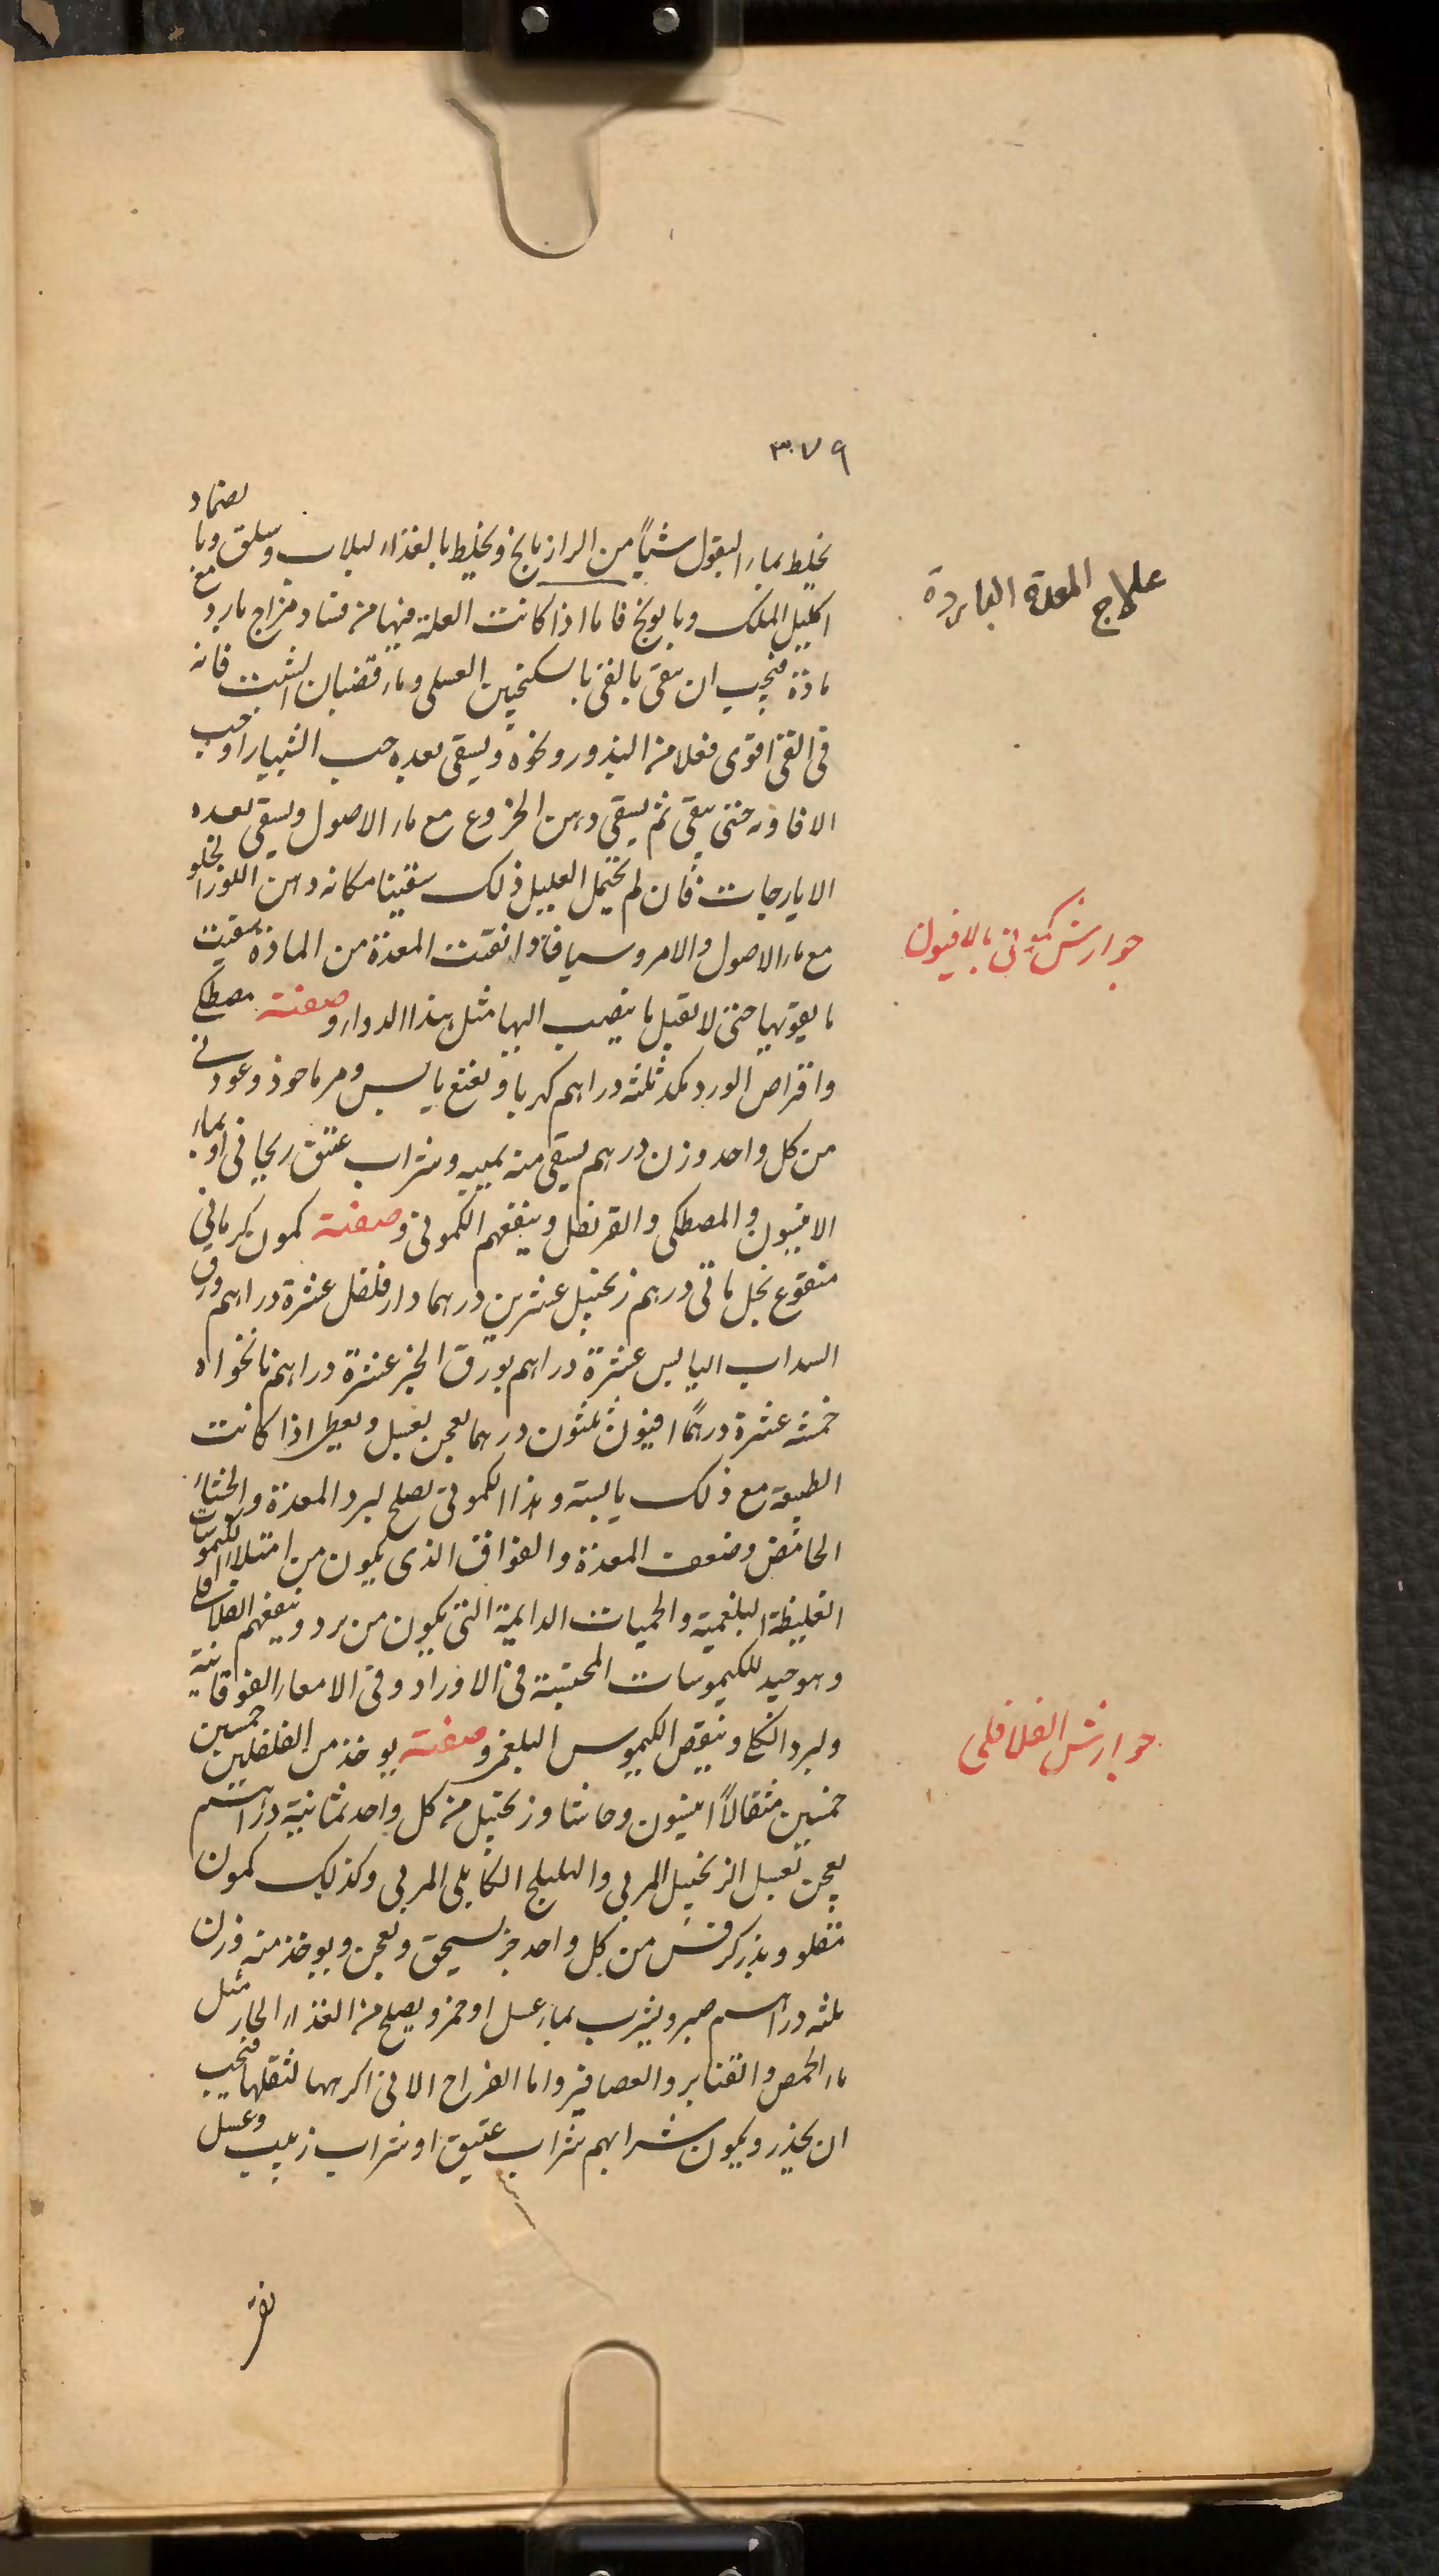 ٣٧٩
يخلط بماء البقول شيأً من الرازيانج ويخلط بالغذاء لبلاب وسلق وبا لضماد
علاج المعدة الباردة
اكليل الملك وبابونج فاما اذا كانت العلة فيها من فساد مزاج بارد مع
مادة فيجب ان ينقى بالقئ بالسكنجبين العسلى وماء قضبان الشبت فانه
فى القئ اقوى فعلا من البذور ونحوه ويسقى بعده حب الشبيار او حب
الافاويه حتى ينقى ثم يسقى دهن الخروع مع ماء الاصول ويسقى بعده
الايارجات فان لم يحتمل العليل ذلك سقينا مكانه دهن اللوز
جوارش كمونى بالافيون
مع ماء الاصول والامروسيا فاذا نقيت المعدة من المادة سقيت
ما يقويها حتى لا تقبل ما ينصب اليها مثل هذا الدواء وصفته مصطكى
واقراص الورد مكد ثلثه دراهم كهربا ونعنع يابس ومرماحوذ وعود نى
من كل واحد وزن درهم يسقى منه بميبه وشراب عتيق ريحانى او بماء
الانيسون والمصطكى والقرنفل وينفعهم الكمونى وصفته كمون كرمانى
منقوع بخل مائتى درهم زنجبيل عشرين درهما دارفلفل عشرة دراهم ورق
السداب اليابس عشرة دراهم بورق الخبز عشرة دراهم نانخواه
خمسة عشرة درهمًا افيون ثلثون درهما يعجن بعسل ويعطى اذا كانت
الطبيعة مع ذلك يابسة وهذا الكمونى يصلح لبرد المعدة والجشاء
الحامض وضعف المعدة والفواق الذى يكون من امتلاء الكيموسات
الغليظة البلغمية والحميات الدايمة التى يكون من برد وينفعهم الفلافلى
وهو جيد للكيموسات المحتبسة فى الاوراد وفى الامعاء الفوقانية
جوارش الفلافلى
ولبرد الكلى وينقص الكيموس البلغمى وصفته يوخذ من الفلفلين خمسين
خمسين مثقالاً انيسون وحاشا وزنجبيل من كل واحد ثمانية دراهم
يعجن بعسل الزنجبيل المربى والهليلج الكابلى المربى وكذلك كمون
مقلو وبذر كرفس من كل واحد جز يسحق ويعجن ويوخذ منه وزن
ثلثه دراهم صبر ويشرب بماء عسل او خمر ويصلح من الغذاء الحار مثل
ماء الحمص والقنابر والعصافير واما الفراخ الا فى اكرهها لثقلها فيجب
ان يحذر ويكون شرابهم شراب عتيق او شراب زبيب وعسل